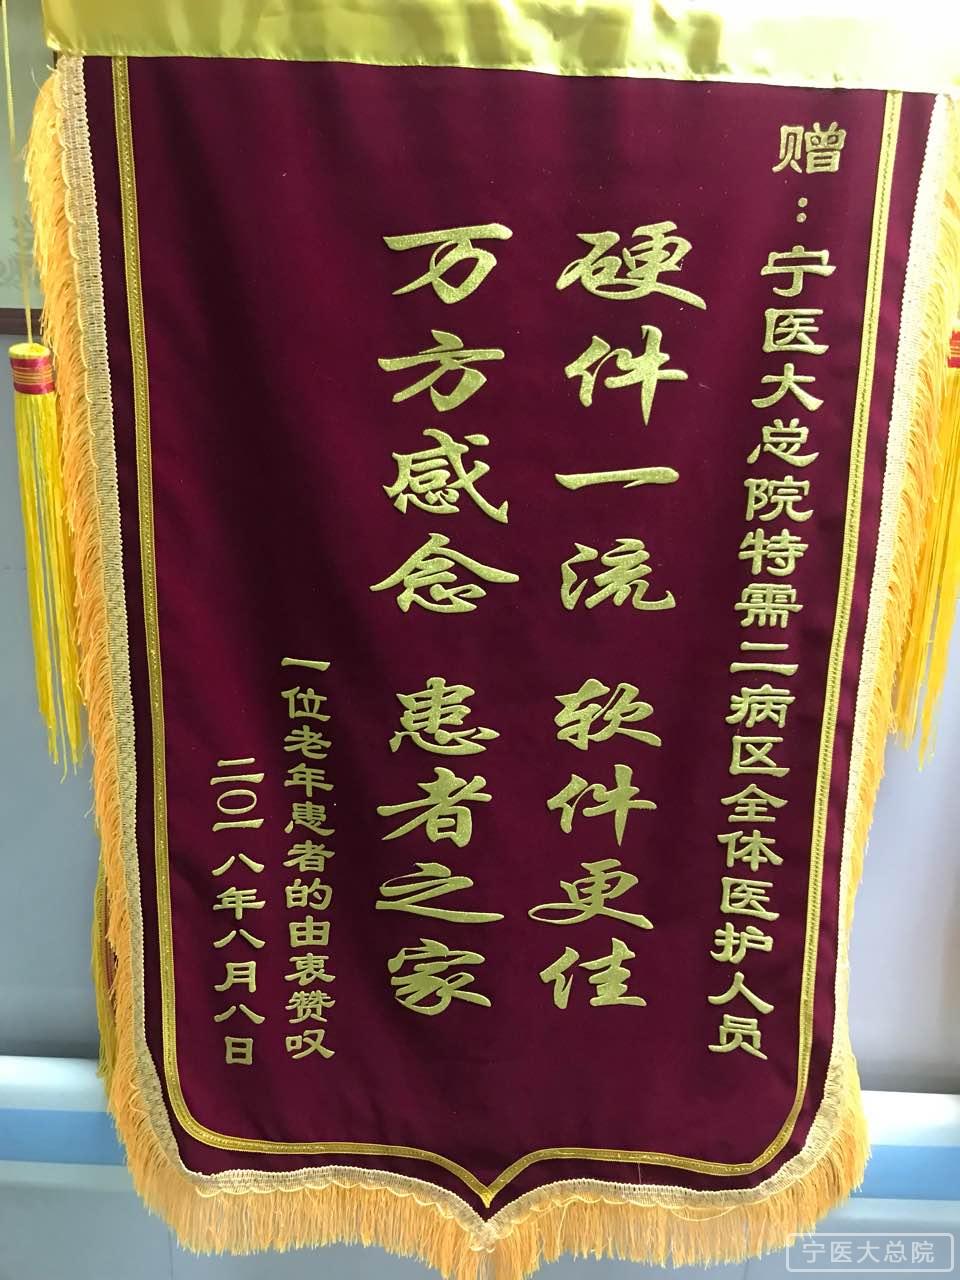 赠：宁医大总院特需二病区全体医护人员
硬件一流 软件更佳
万方感念 患者之家
一位老年患者的由衷赞叹
二〇一八年八月八日
宁医大总院